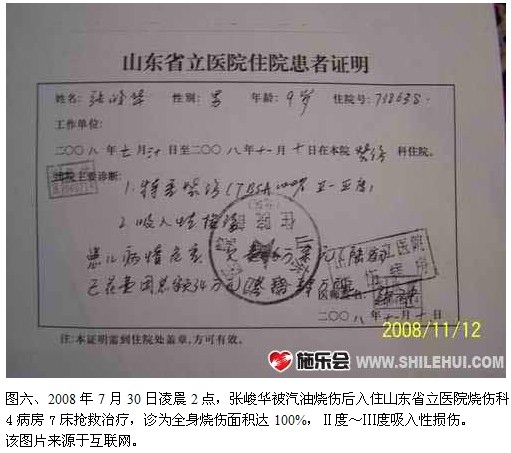 山东省立医院住院患者证明
姓名: 张峻华 性别: 男 年龄: 9岁 住院号: 718638
工作单位:
二〇〇八年七月三十日至二〇〇八年十一月十日在本院烧伤科住院。
出院主要诊断:
1. 特重烧伤(TBSA 100% Ⅱ-Ⅲ度)
2. 吸入性损伤
患儿病情危重
已花费用总额34万元
医师签名:
二〇〇八年11月10日
注:本证明需到住院处盖章,方可有效。
2008/11/12
施乐会 WWW.SHILEHUI.COM
图六、2008年7月30日凌晨2点,张峻华被汽油烧伤后入住山东省立医院烧伤科
4病房7床抢救治疗,诊为全身烧伤面积达100%,Ⅱ度~III度吸入性损伤。
该图片来源于互联网。